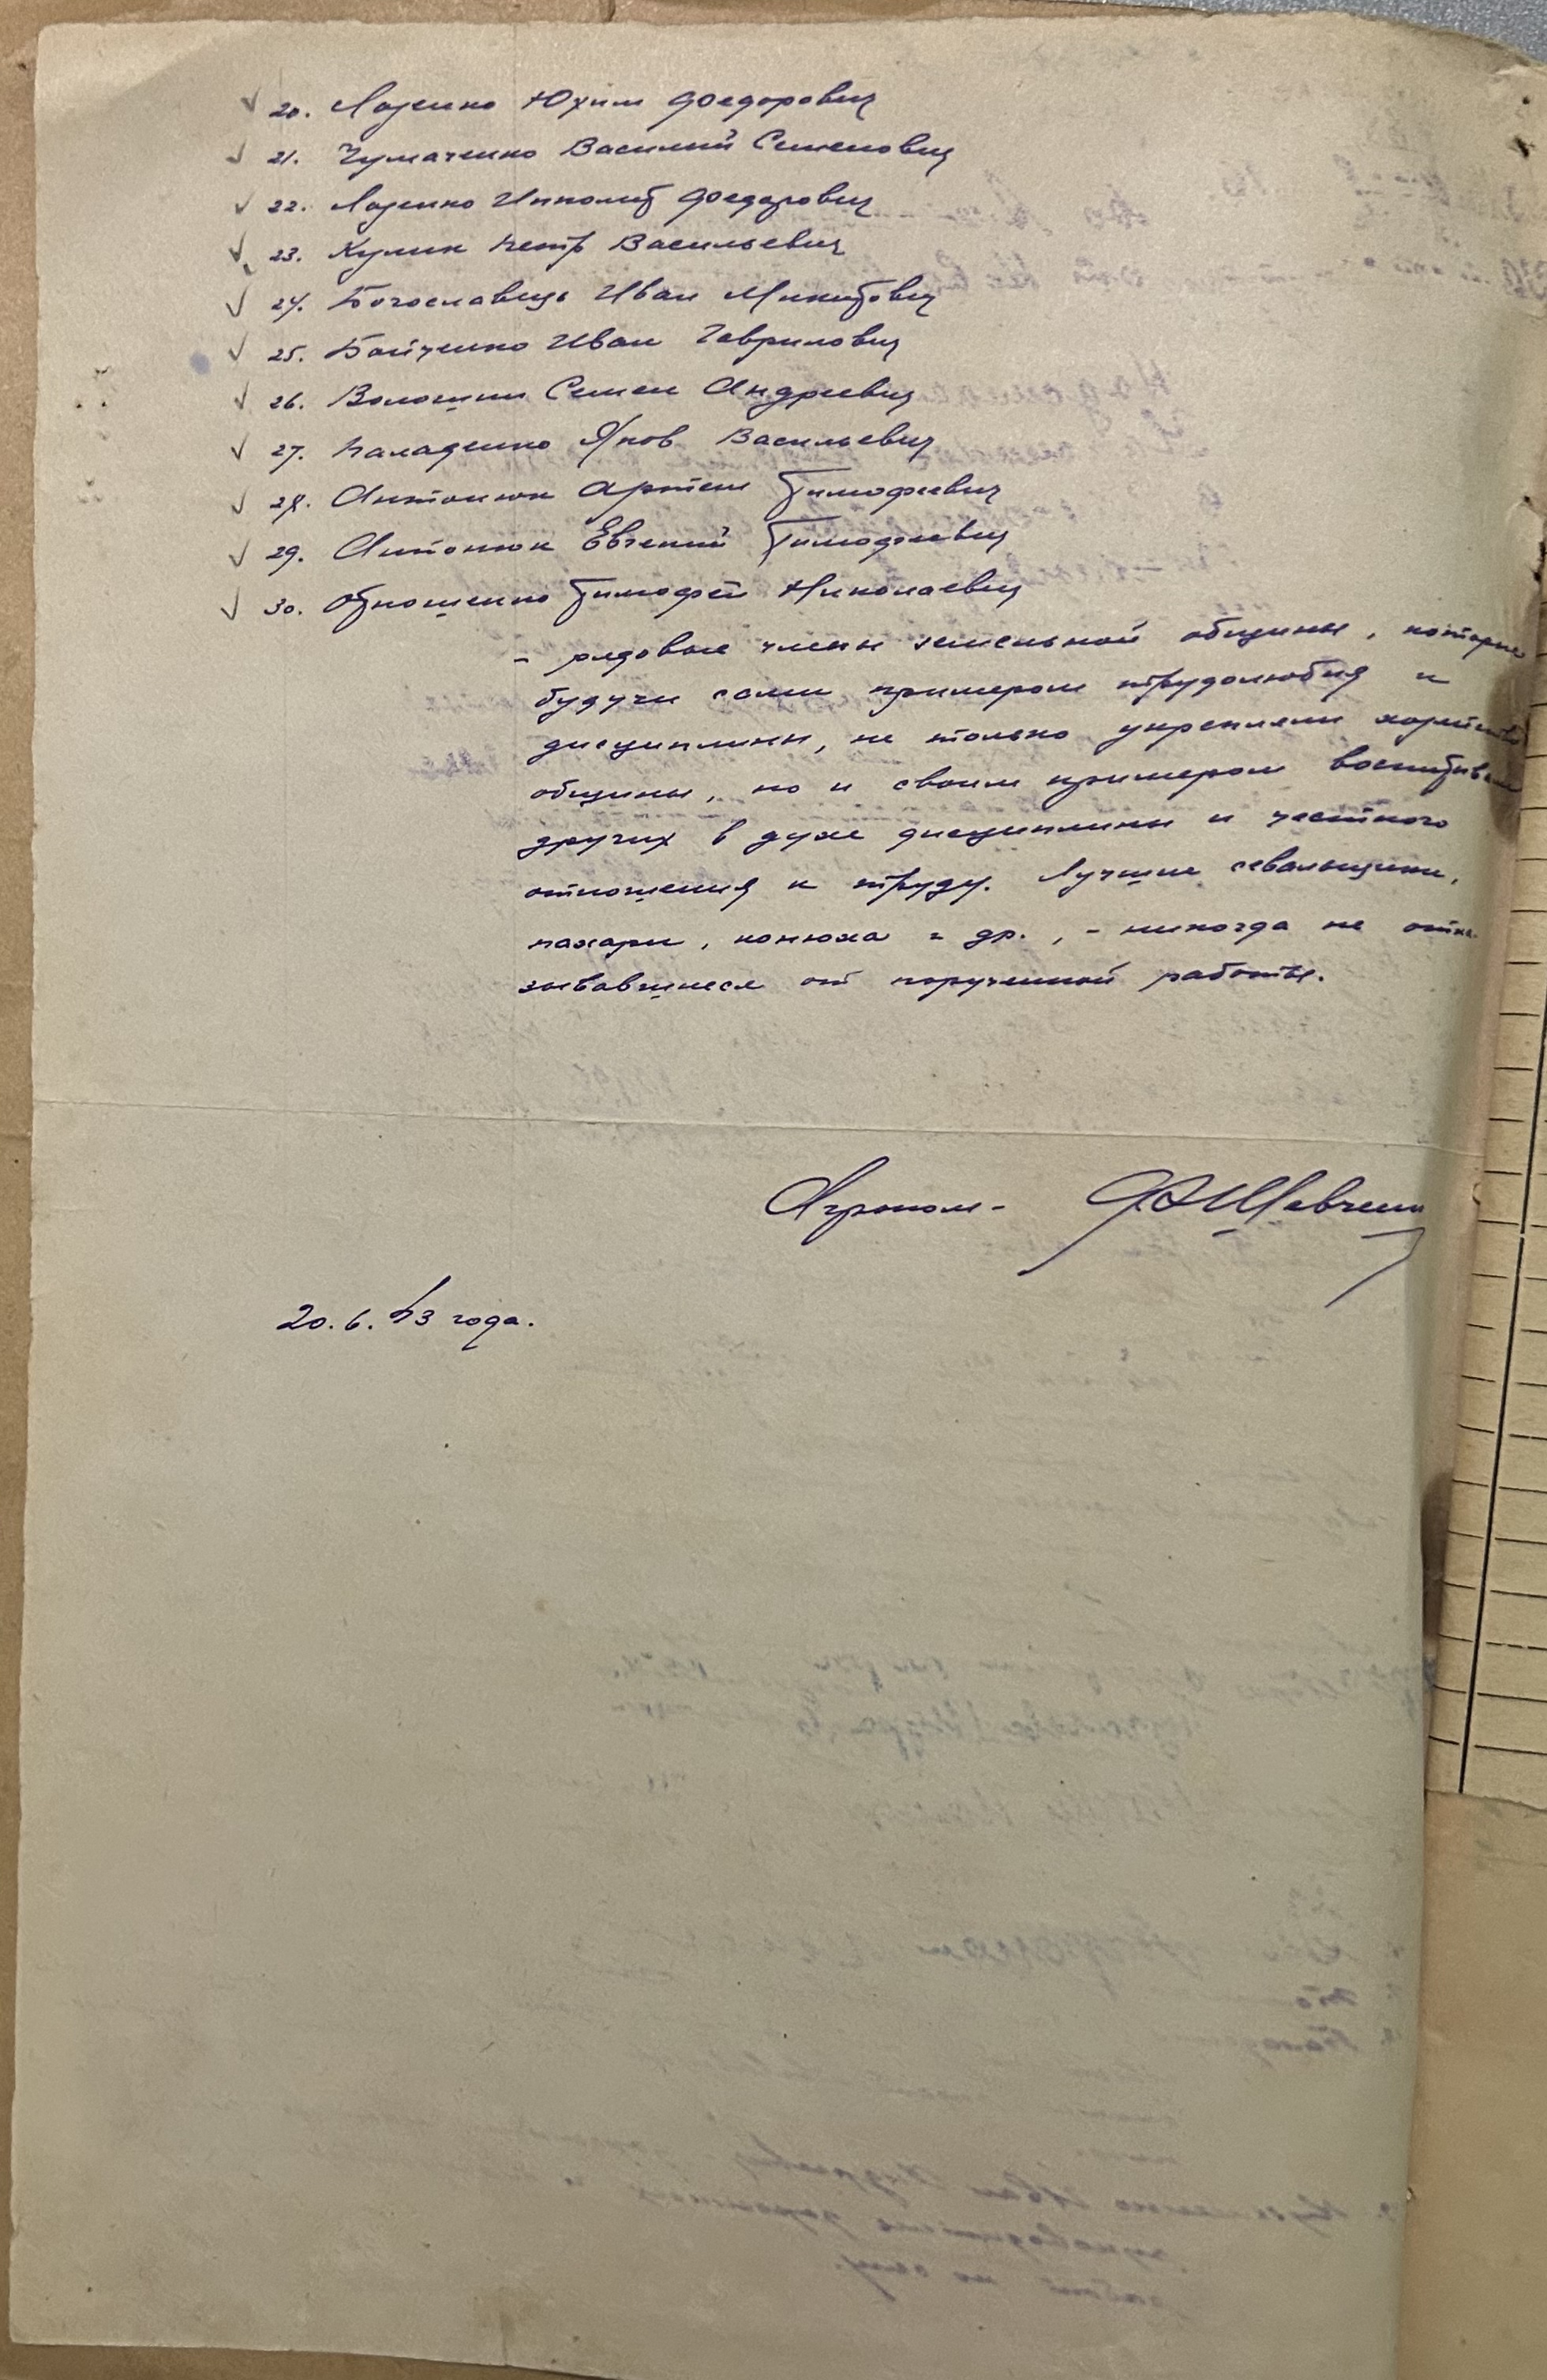 20. Лазенко Юхим Федорович
21. Чумаченко Василий Семенович
22. Лазенко Иполит Федорович
23. Кулик Петр Васильевич
24. Богославець Иван Микитович
25. Бойченко Иван Гаврилович
26. Волошин Семен Андреевич
27. Паладенко Яков Васильевич
28. Антонюк Артем Тимофеевич
29. Антонюк Евгений Тимофеевич
30. Отношенко Тимофей Николаевич
- рядовые члены земельной общины, которые
будучи сами примером трудолюбия и
дисциплины, не только укрепляли хозяйство
общины, но и своим примером воспитывали
других в духе дисциплины и честного
отношения к труду. Лучшие севальщики,
пахари, конюха и др., - никогда не отка-
зывавшиеся от порученной работы.
Агроном - Шевченко
20.6.43 года.